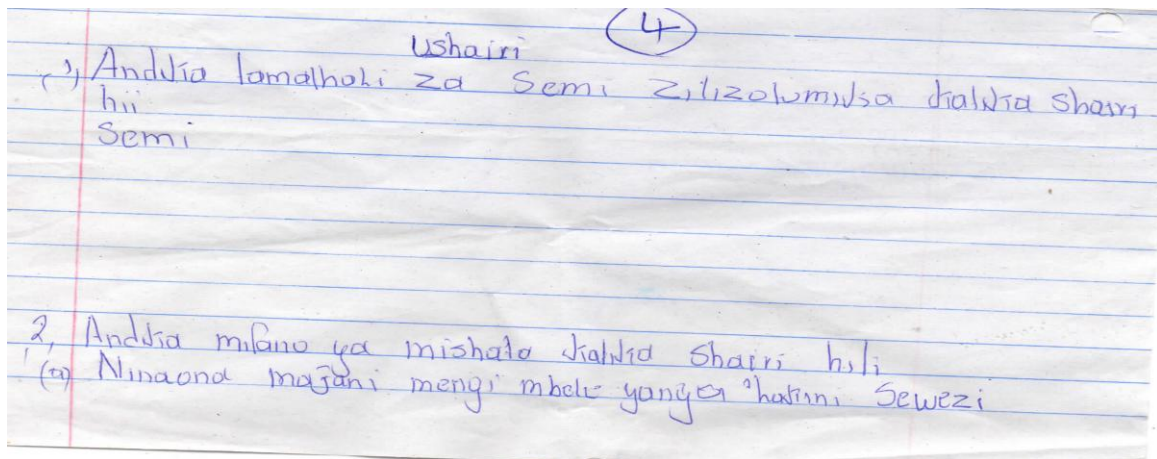 4
Ushairi
Andika
za Semi zilizotumika katika Shairi
hii
Semi
2, Andika mifano ya mishata katika Shairi hili
(a) Ninaona majani mengi mbele yangu